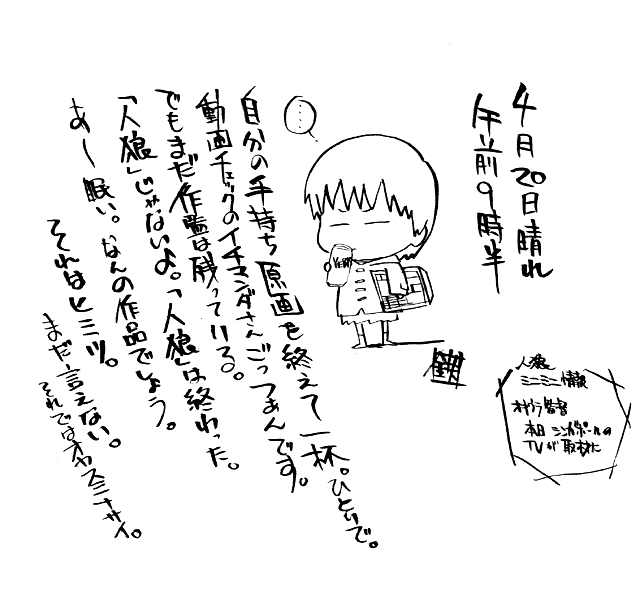 4月20日晴れ
午前9時半
……
自分の手持ち原画を終えて一杯。ひとりで。
動画チェックのイチマンダさんごっつぁんです。
でもまだ作監は残っている。
「人狼」じゃないよ。「人狼」は終わった。
あ〜眠い。なんの作品でしょう。
それはヒミツ。
まだ言えない。
それではオヤスミナサイ。
人狼
ミニミニ情報
オキウラ監督
本日シンガポールの
TVが取材に